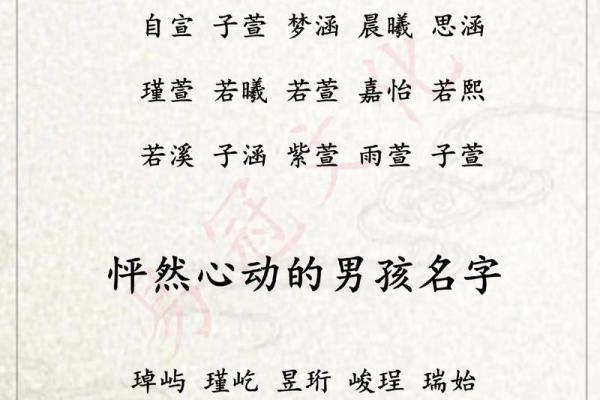 自宣 子萱 梦涵 晨曦 思涵
瑾萱 若曦 若萱 嘉怡 若熙
若溪 子涵 紫萱 雨萱 子萱
怦然心动的男孩名字
琸屿 瑾屹 昱珩 峻珵 瑞始
易冠文化